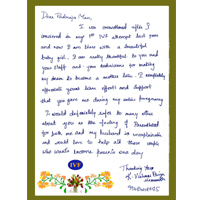 Dear Padmaja Mam,
I was overwhelmed after I
conceived in my 1st IVF attempt last year
and now I am blessed with a beautiful
baby girl. I am really thankful to you and
your staff and your dedication for making
my dream to become a mother true. I completely
appreciate yours team effort and Support
that you gave me during my entire pregnancy
I would definitely refer to many other
about you as the feeling of Parenthood
for both me and my husband is unexplainable
and would love to help all those couple
who wants become parents one day
Thanking You
IVF